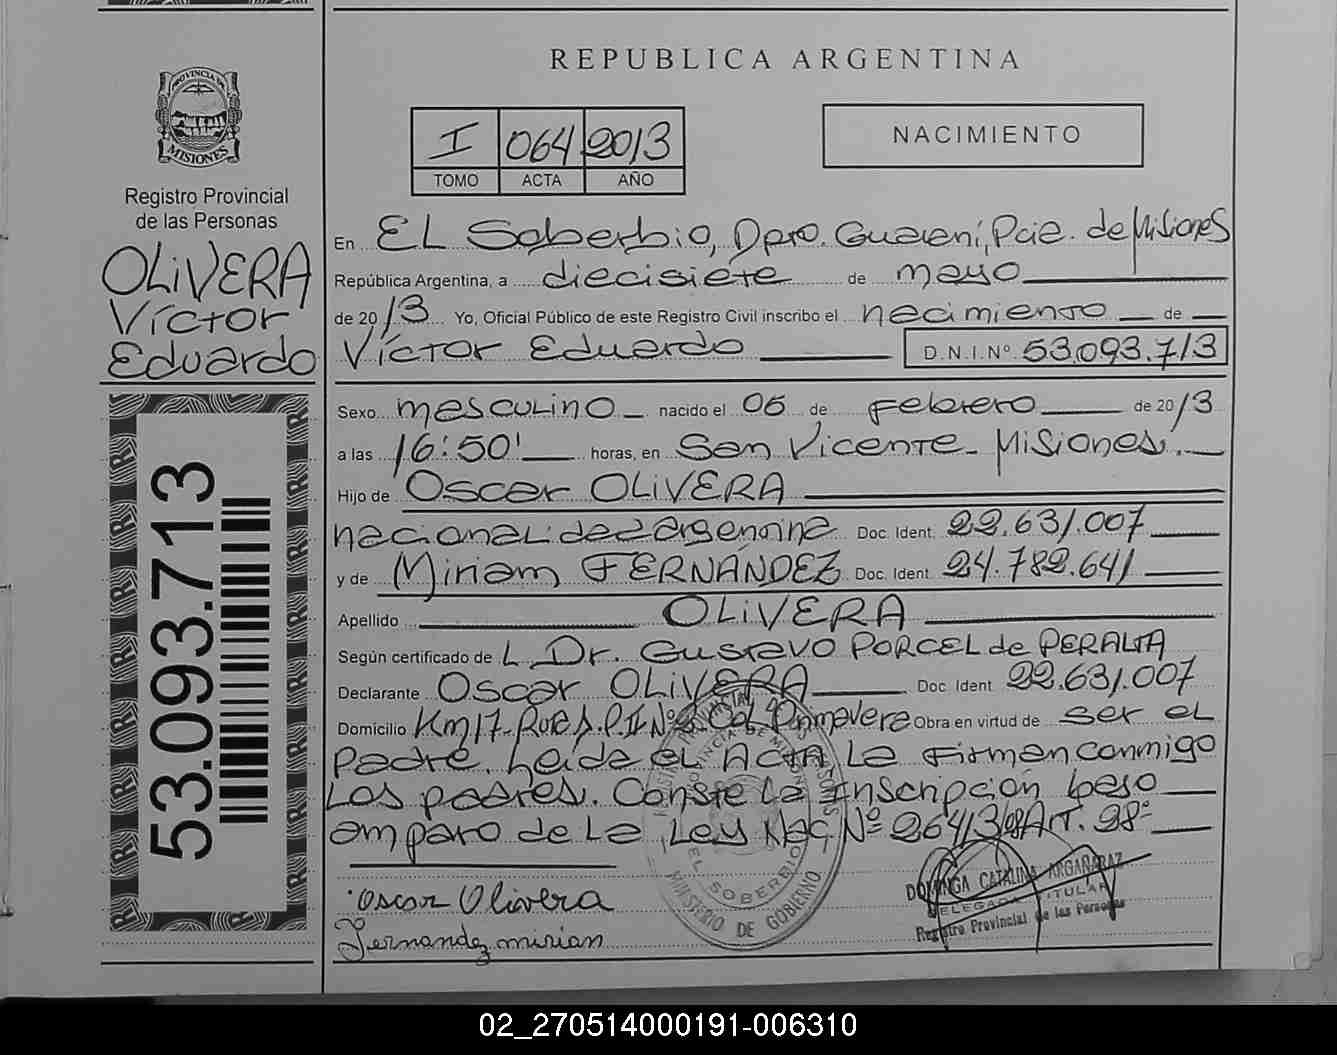 REPUBLICA ARGENTINA
PROVINCIA DE
MISIONES
Registro Provincial
de las Personas
OLIVERA
Víctor
Eduardo
53.093.713
I 064 2013
TOMO ACTA AÑO
NACIMIENTO
En EL Soberbio, Dpto. Guaraní, Pcia. de Misiones
República Argentina, a diecisiete de mayo
de 2013 Yo, Oficial Público de este Registro Civil inscribo el nacimiento de
Víctor Eduardo D.N.I.Nº 53.093.713
Sexo masculino nacido el 05 de Febrero de 2013
a las 16:50' horas, en San Vicente - Misiones.
Hijo de Oscar OLIVERA
nacionalidad argentina Doc. Ident. 22.631.007
y de Miriam FERNÁNDEZ Doc. Ident. 24.782.641
Apellido OLIVERA
Según certificado de L Dr. Gustavo PORCEL de PERALTA
Declarante Oscar OLIVERA Doc. Ident. 22.631.007
Domicilio Km17- Ruta Col. Primavera Obra en virtud de ser el
Padre. Leída el Acta La Firman conmigo
Los padres. Conste la Inscripción bajo
amparo de La Ley Nac. Nº 26413/08 Art. 28º
Oscar Olivera
Fernandez mirian
EL SOBERBIO
MINISTERIO DE GOBIERNO
DOMINGA CATALINA ARGAÑARAZ
DELEGADA TITULAR
Registro Provincial de las Personas
02_270514000191-006310